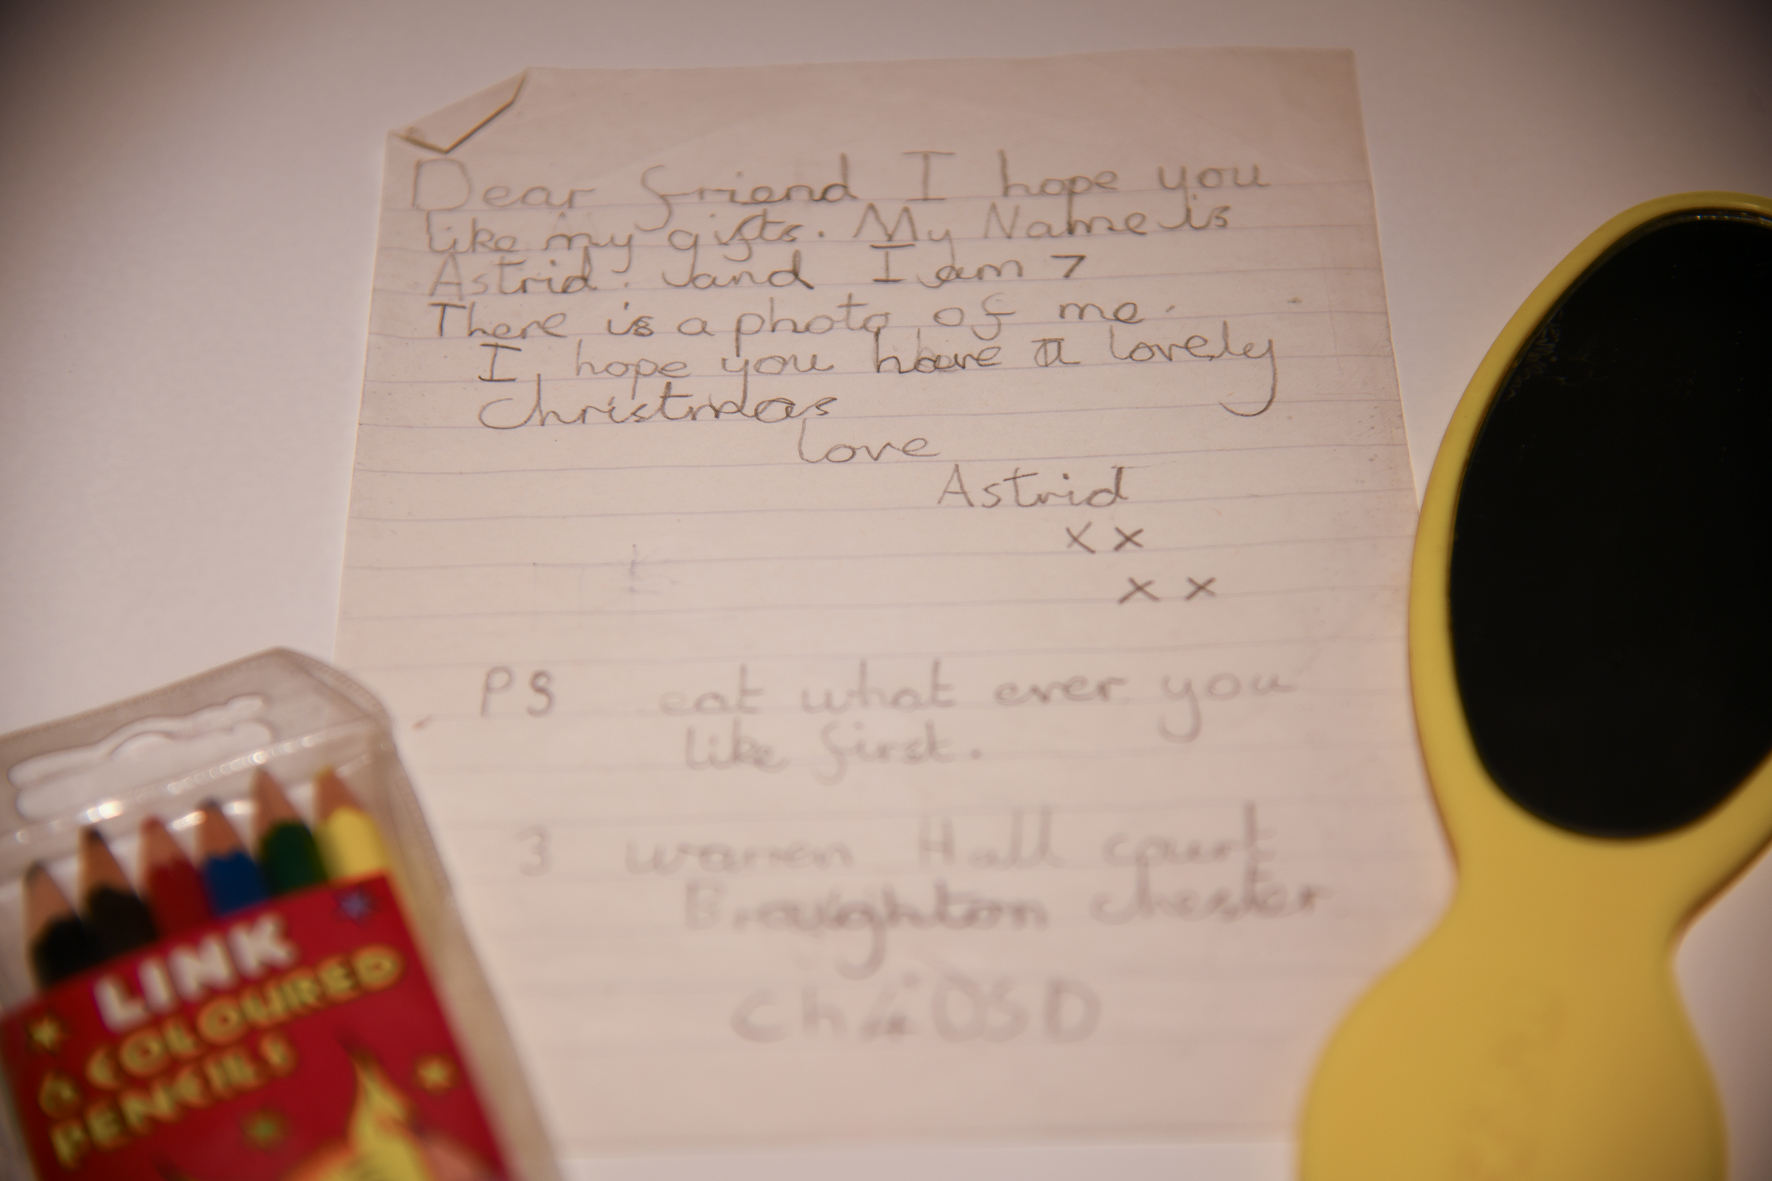 Dear friend I hope you
like my gifts. My Name is
Astrid. and I am 7
There is a photo of me.
I hope you have a lovely
Christmas
love
Astrid
x x
x x
PS eat what ever you
like first.
3 warren Hall court
Broughton chester
ch4 0SD
LINK
6 COLOURED
PENCILS